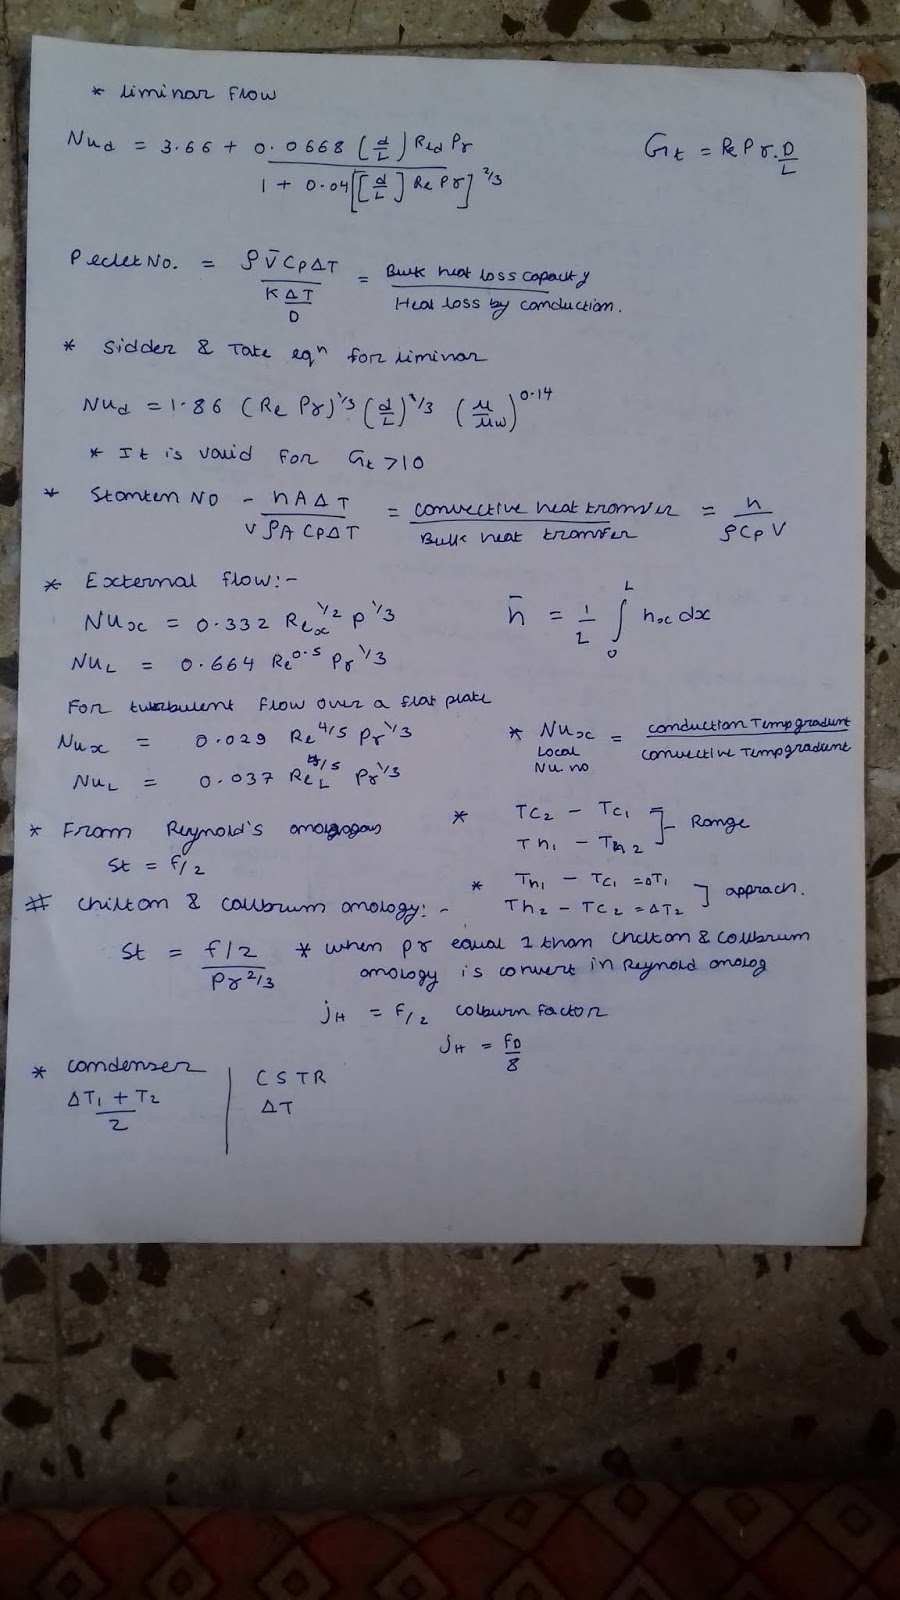 * liminar flow
Nu_d = 3.66 + 0.0668 (d/L) Re_d Pr / 1 + 0.04 [[d/L] Re Pr]^2/3
Gt = Re Pr. D/L
Peclet No. = ρ V̄ Cp ΔT / (K ΔT / D) = Bulk heat loss capacity / Heat loss by conduction.
* Sidder & Tate eqn for liminar
Nu_d = 1.86 (Re Pr)^1/3 (d/L)^1/3 (μ/μw)^0.14
* It is valid for Gt > 10
* Stanten No - h A Δ T / V ρ A Cp Δ T = convective heat transfer / Bulk heat transfer = h / ρ Cp V
* External flow:-
Nu_x = 0.332 Re_x^1/2 P^1/3
h̄ = 1/L ∫_0^L h_x dx
Nu_L = 0.664 Re^0.5 Pr^1/3
For turbulent flow over a flat plate
Nu_x = 0.029 Re^4/5 Pr^1/3
* Nu_x = conduction Temp gradunt / convective Temp gradunt
Local
Nu no
Nu_L = 0.037 Re_L^4/5 Pr^1/3
* TC2 - TC1
Th1 - Th2 ] Range
* From Reynold's
St = f/2
* Th1 - TC1 = ΔT1
Th2 - TC2 = ΔT2 ] apprach.
# chilton & coulbrum anology:-
St = f/2 / Pr^2/3
* when pr equal 1 than Chilton & Coulbrum
anology is convert in Reynold analog
jH = f/2 colburn factor
jH = fD/8
* condenser
ΔT1 + T2 / 2
CSTR
ΔT